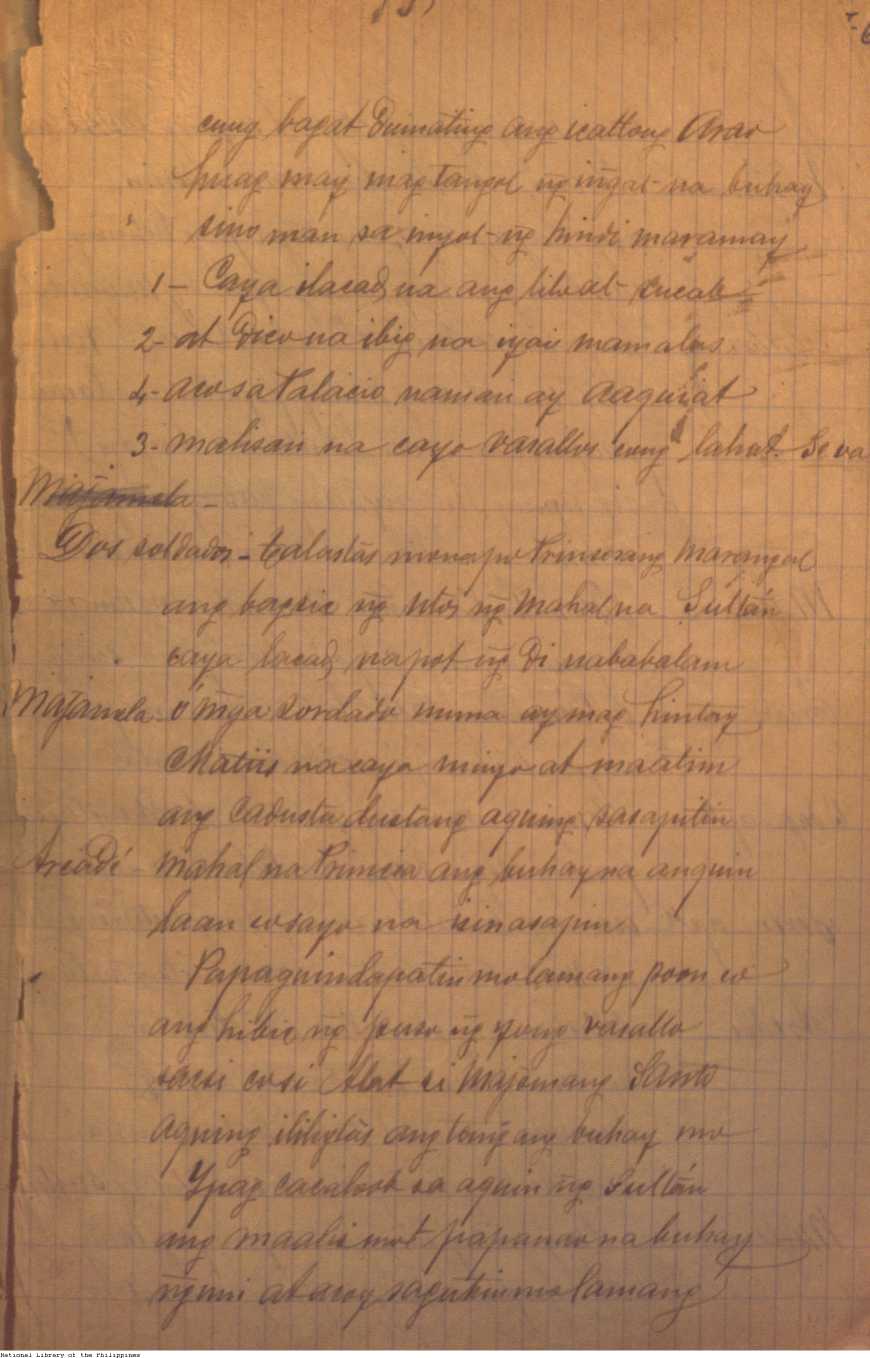 cung bagat dumating ang icatlong Arao
huag may mag tangol ng ingat na buhay
sino man sa inyot ng hindi maramay
1 - Caya ilacad na ang
2 - at dico na ibig na iyai mamalas
4 - aco sa Palacio naman ay
3 - maalisan na cayo vasallos cung lahat. Se va
Dos soldados - talastas mona po Prinsesang Marangal
ang bagsic ng Utos ng Mahal na Sultán
caya lacad na pot ng di nababalam
Majamela ó mga Sordado muna ay mag hintay
Matiis na caya ninyo at maatim
ang Cadusta dustang aquing sasapitin
Mahal na Princesa ang buhay na anquin
laan co sayo na
Papaguindapatin mo lamang poon co
ang hibic ng puso ng yyong vasallo
sacsi co si Alat si Majomang Santo
aquing ililigtás ang tang̃ang buhay mo
Ypag cacaloob sa aquin ng Sultán
ang maalis mot papanao na buhay
nguni at acoy sagutin mo lamang
National Library of the Philippines